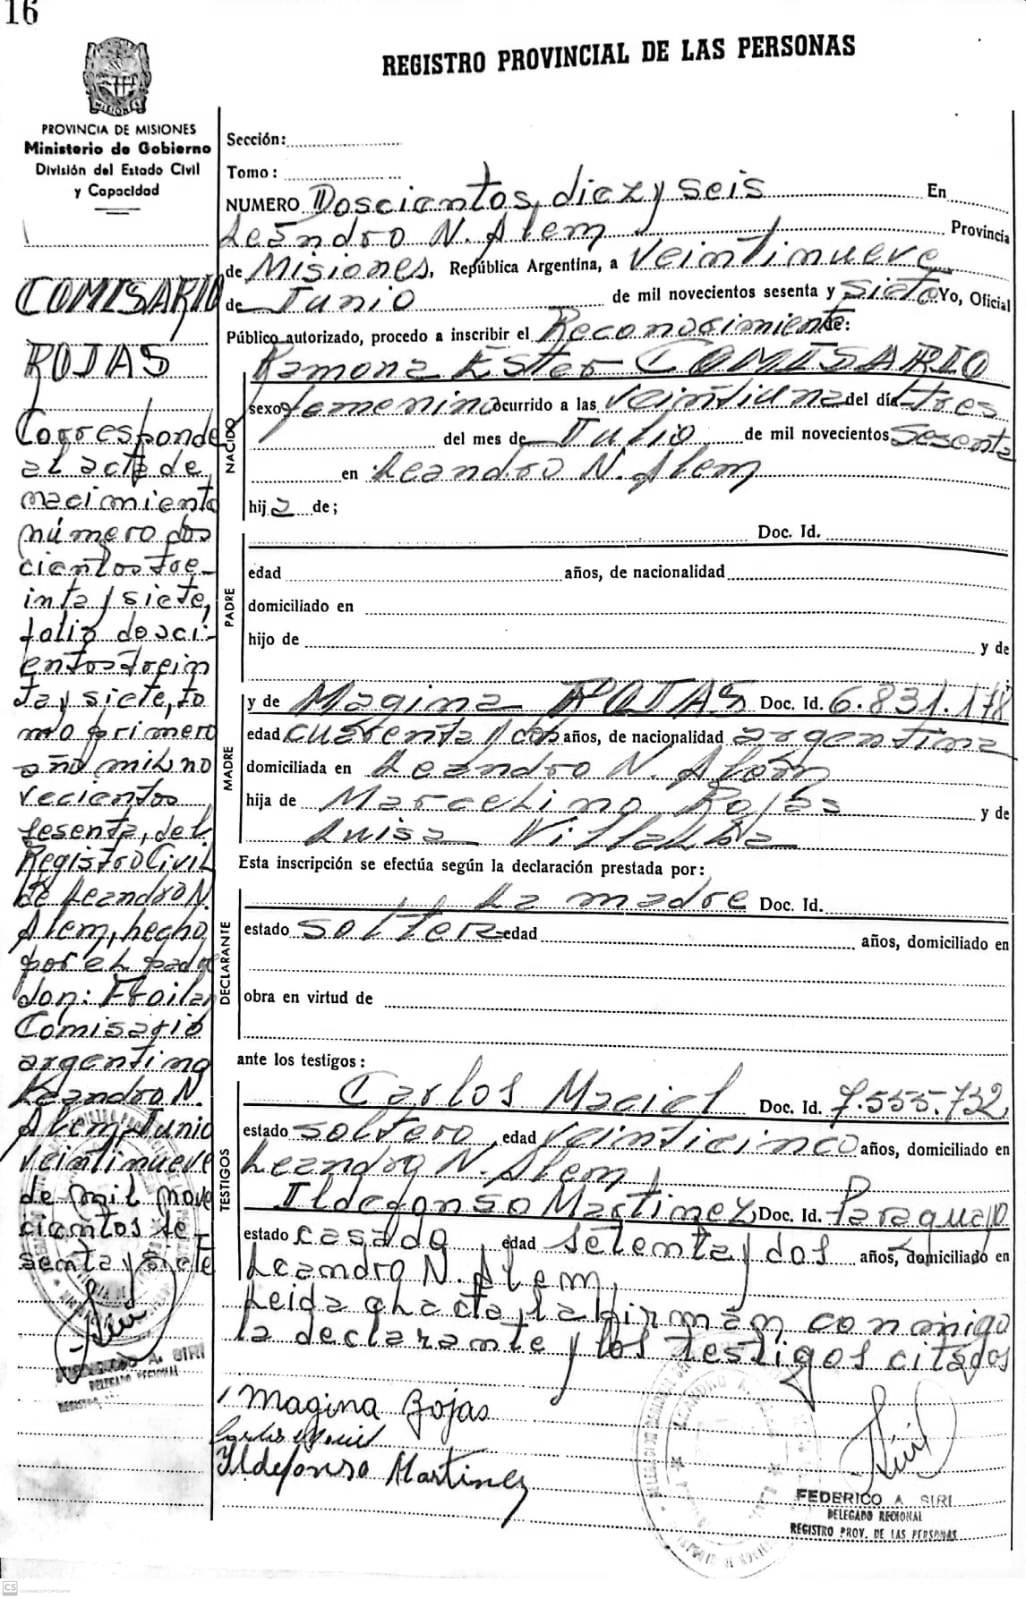 16
REGISTRO PROVINCIAL DE LAS PERSONAS
MISIONES
PROVINCIA DE MISIONES
Ministerio de Gobierno
División del Estado Civil
y Capacidad
COMISARIO
ROJAS
Corresponde
al acta de
nacimiento
número dos
cientos tre-
inta y siete,
folio dosci-
entos trein
ta y siete, to
mo primero
año mil no
vecientos
sesenta, del
Registro Civil
de Leandro N.
Alem, hecho
por el padre
don: Froilan
Comisario
argentino
Leandro N.
Alem, Junio
veintinueve
de mil nove
cientos se-
senta y siete
FEDERICO A. SIRI
DELEGADO REGIONAL
Sección:
Tomo:
NUMERO Doscientos diez y seis En
Leandro N. Alem Provincia
de Misiones, República Argentina, a veintinueve
de Junio de mil novecientos sesenta y siete Yo, Oficial
Público autorizado, procedo a inscribir el Reconocimiento de:
NACIDO
Ramona Ester COMISARIO
sexo femenino ocurrido a las veintiuna del día tres
del mes de Julio de mil novecientos sesenta
en Leandro N. Alem
hija de;
PADRE
Doc. Id.
edad años, de nacionalidad
domiciliado en
hijo de y de
MADRE
y de Magina ROJAS Doc. Id. 6.831.178
edad cuarenta y dos años, de nacionalidad argentina
domiciliada en Leandro N. Alem
hija de Marcelino Rojas y de
Luisa Villalba
Esta inscripción se efectúa según la declaración prestada por:
DECLARANTE
La madre Doc. Id.
estado soltera edad años, domiciliado en
obra en virtud de
ante los testigos:
TESTIGOS
Carlos Maciel Doc. Id. 7.555.732
estado soltero, edad veinticinco años, domiciliado en
Leandro N. Alem
Ildefonso Martinez, Doc. Id. Paraguayo
estado casado edad setenta y dos años, domiciliado en
Leandro N. Alem,
Leida el acta, la firman conmigo
la declarante y los testigos citados
Magina Rojas
Carlos Maciel
Ildefonso Martinez
FEDERICO A. SIRI
DELEGADO REGIONAL
REGISTRO PROV. DE LAS PERSONAS
CS